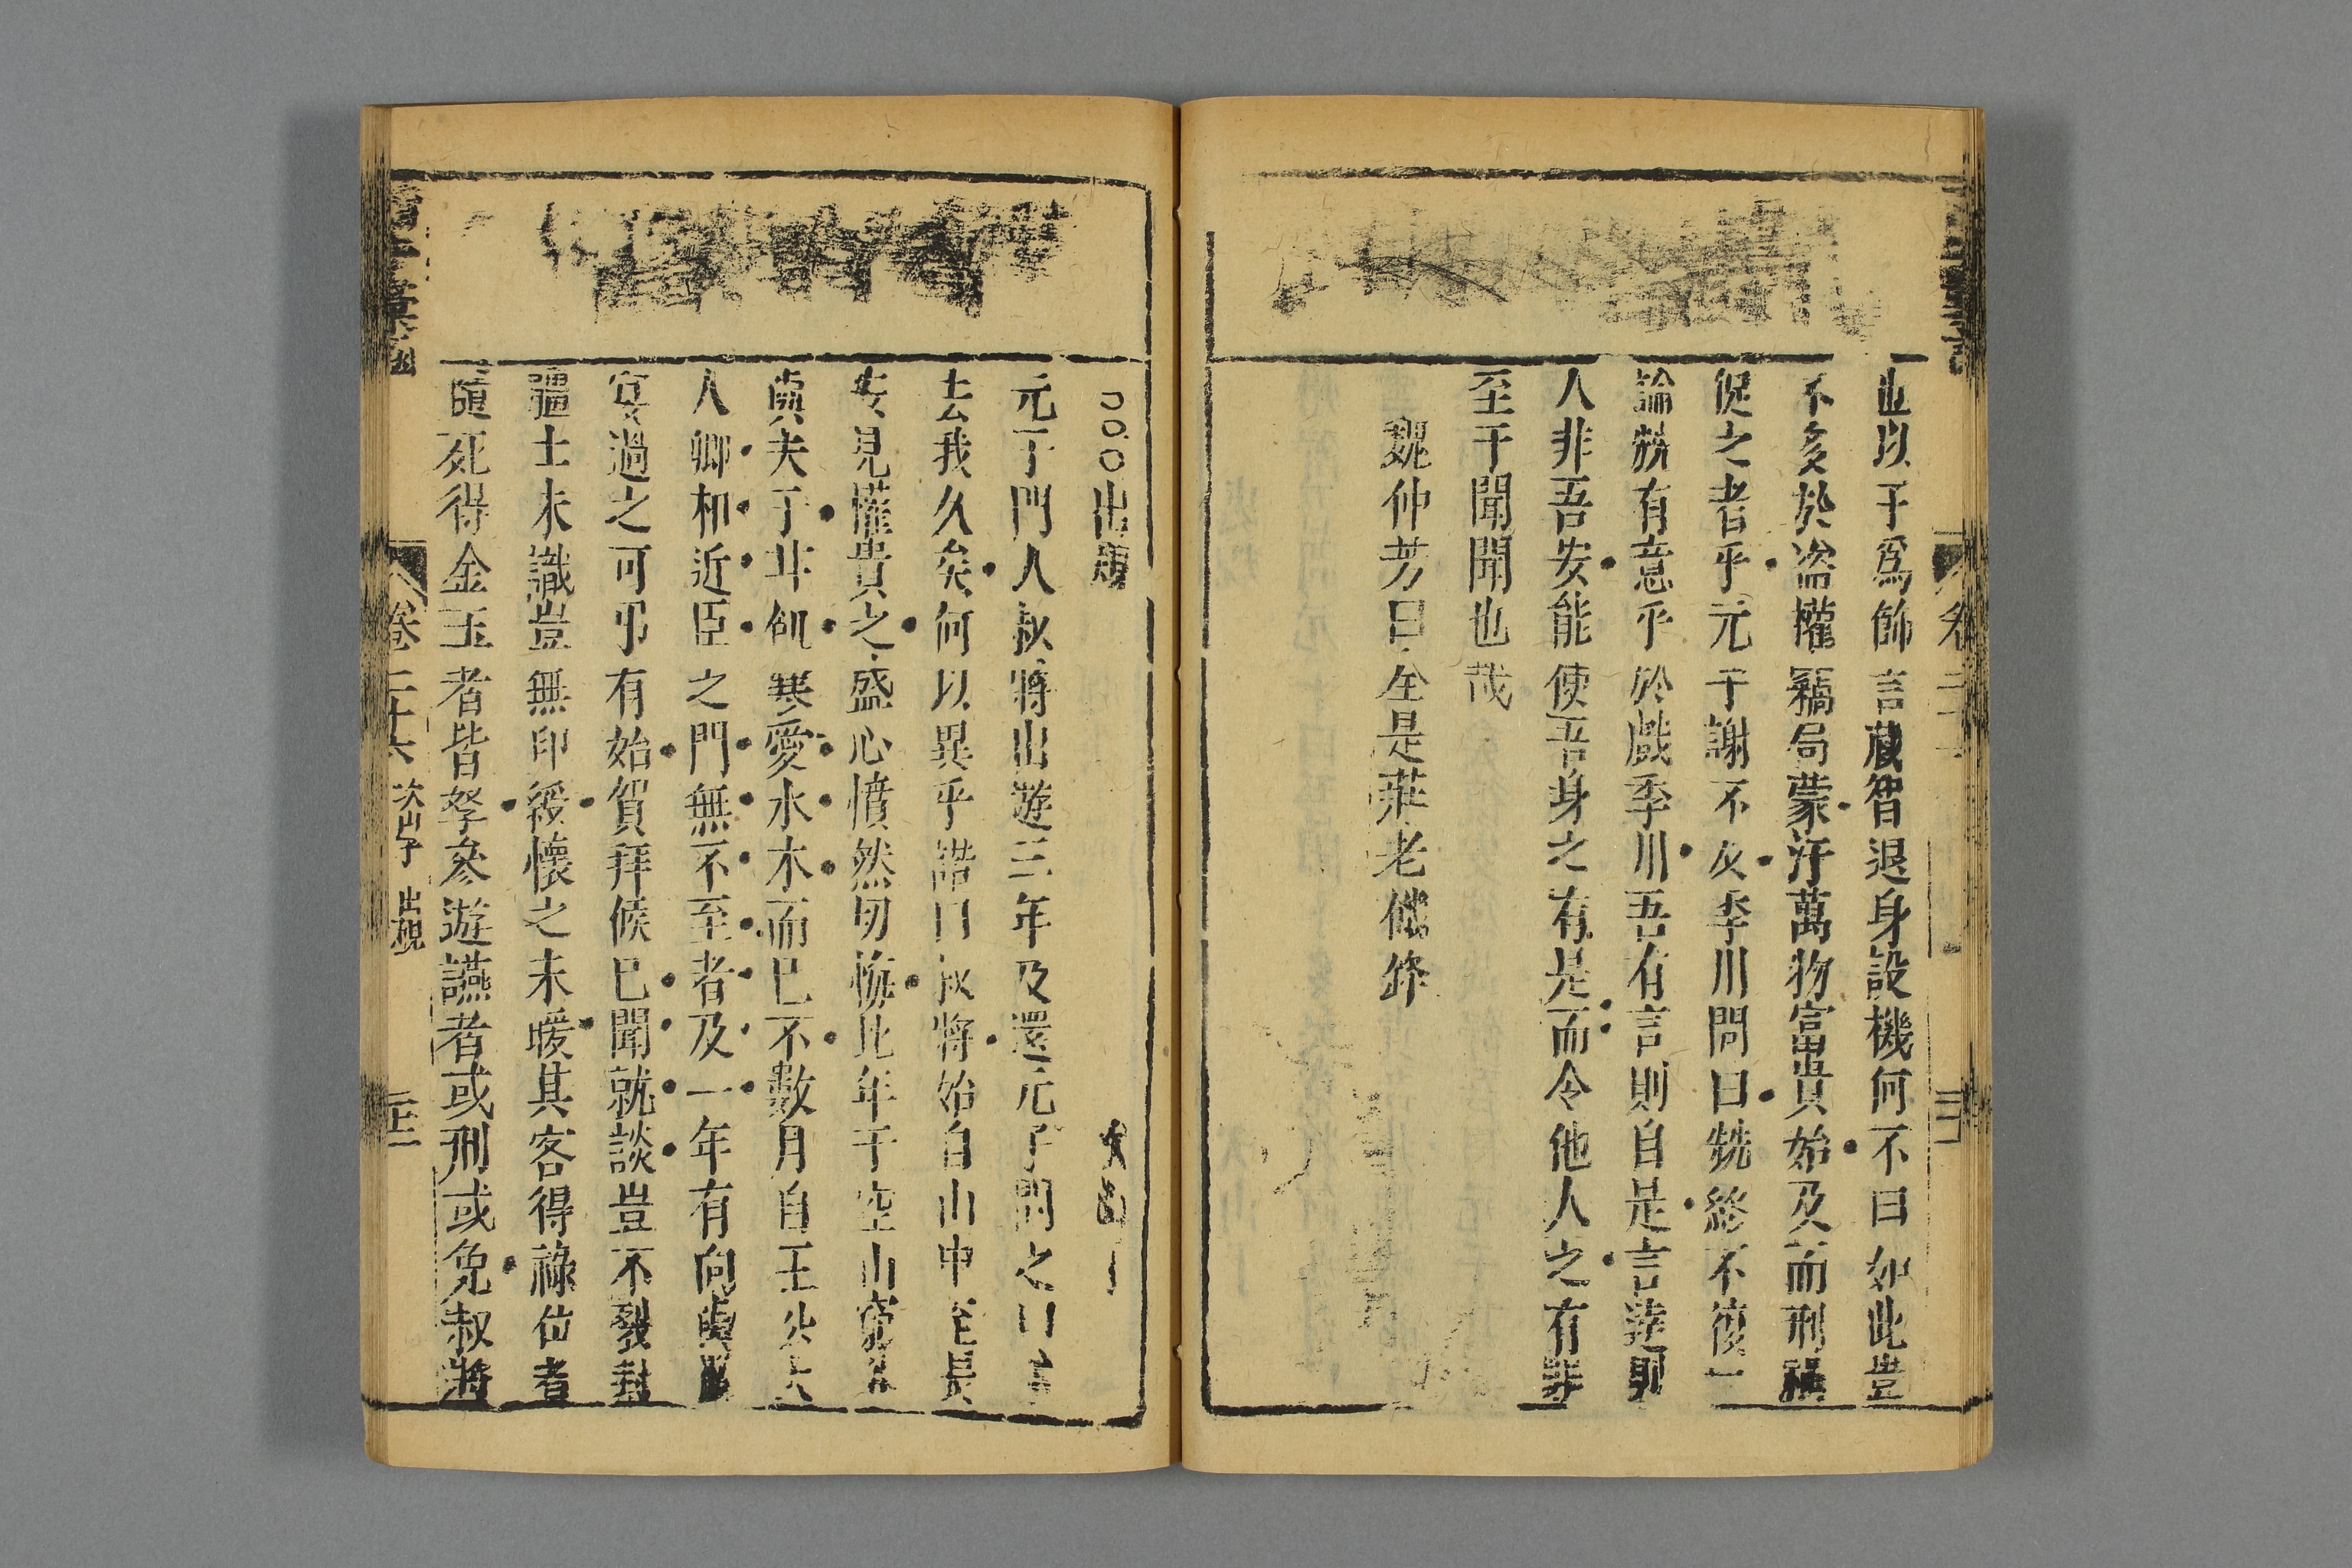 也以予爲飾言藏智退身設機何不曰如此豈
不多於盜權竊局蒙汙萬物富貴始及而刑禍
促之者乎元子謝不及季川問曰兄終不復二
論兄有意乎於戲季川吾有言則自是言達則
人非吾安能使吾身之有是而令他人之有非
至于聞聞也哉
魏仲芳曰全是莊老
○○○出規
元子門人叔將出遊三年及還元子問之曰
去我久矣何以異乎諾曰叔將始自山中至長
安見權貴之盛心憤然切悔比年于空山窮
與夫子非飢寒愛水木而已不數月自王公大
人卿相近臣之門無不至者及一年有向與
宴過之可弔有始賀拜候已聞就談豈不裂封
疆土未識豈無印綬懷之未暖其客得祿位者
隨死得金玉者皆孥參遊讌者或刑或免叔將
卷二十六 次山子 出規